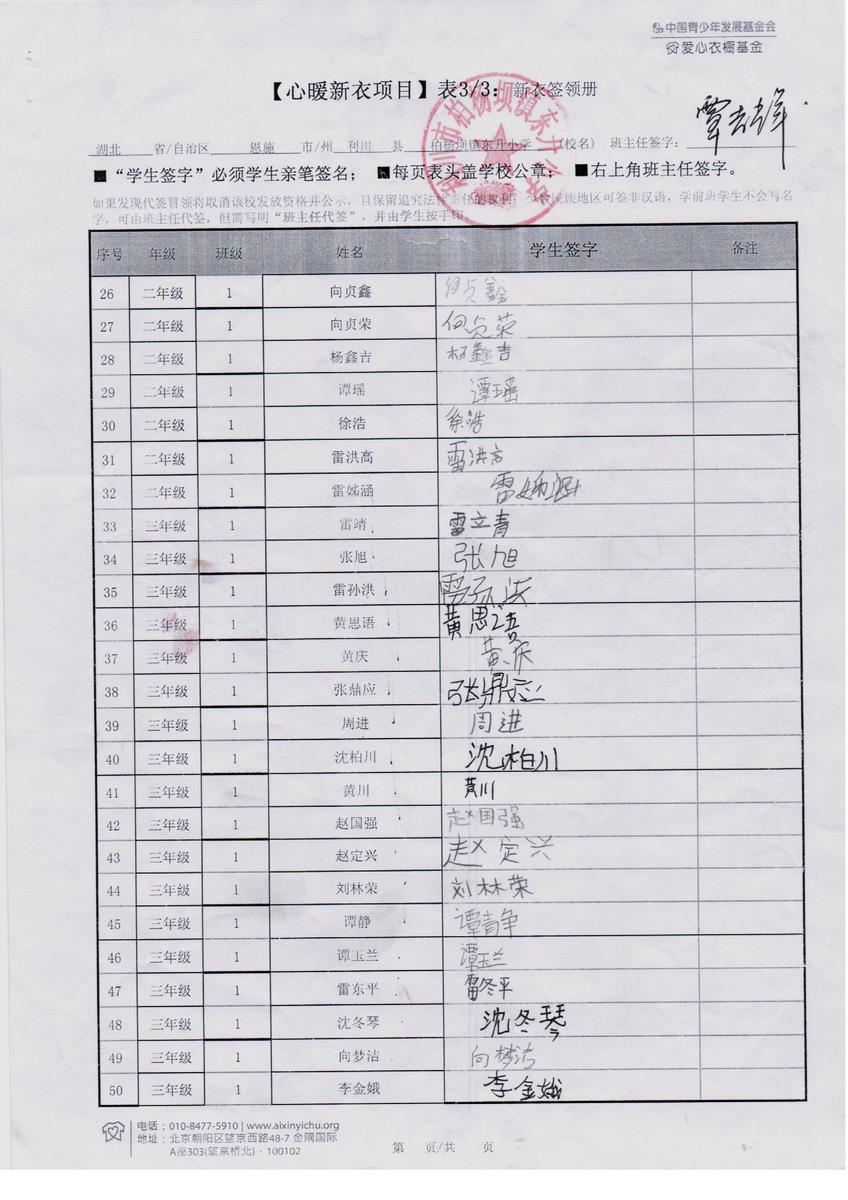 中国青少年发展基金会
爱心衣橱基金
【心暖新衣项目】表3/3：新衣签领册
湖北 省/自治区 恩施 市/州 利川 县 柏杨坝镇东升小学 (校名) 班主任签字：
■“学生签字”必须学生亲笔签名； ■每页表头盖学校公章； ■右上角班主任签字。
如果发现代签冒领将取消该校发放资格并公示，且保留追究法律责任的权利；少数民族地区可签非汉语，学前班学生不会写名
字，可由班主任代签，但需写明“班主任代签”，并由学生按手印
序号 年级 班级 姓名 学生签字 备注
26 二年级 1 向贞鑫 向贞鑫
27 二年级 1 向贞荣 向贞荣
28 二年级 1 杨鑫吉 杨鑫吉
29 二年级 1 谭瑶 谭瑶
30 二年级 1 徐浩 徐浩
31 二年级 1 雷洪高 雷洪高
32 二年级 1 雷姊涵 雷姊涵
33 三年级 1 雷靖 雷立青
34 三年级 1 张旭 张旭
35 三年级 1 雷孙洪 雷孙洪
36 三年级 1 黄思语 黄思语
37 三年级 1 黄庆 黄庆
38 三年级 1 张鼎应 张鼎应
39 三年级 1 周进 周进
40 三年级 1 沈柏川 沈柏川
41 三年级 1 黄川 黄川
42 三年级 1 赵国强 赵国强
43 三年级 1 赵定兴 赵定兴
44 三年级 1 刘林荣 刘林荣
45 三年级 1 谭静 谭静
46 三年级 1 谭玉兰 谭玉兰
47 三年级 1 雷东平 雷冬平
48 三年级 1 沈冬琴 沈冬琴
49 三年级 1 向梦洁 向梦洁
50 三年级 1 李金娥 李金娥
电话：010-8477-5910 | www.aixinyichu.org
地址：北京朝阳区望京西路48-7 金隅国际
A座303(望京桥北)·100102
第 页/共 页